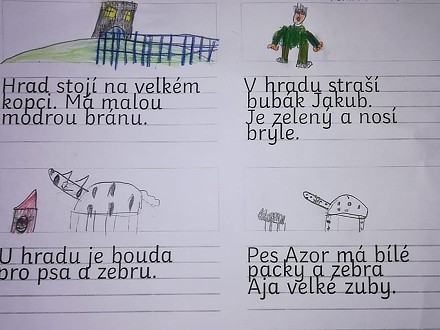 Hrad stojí na velkém
kopci. Má malou
modrou bránu.
V hradu straší
bubák Jakub.
Je zelený a nosí
brýle.
U hradu je bouda
pro psa a zebru.
Pes Azor má bílé
packy a zebra
Aja velké zuby.